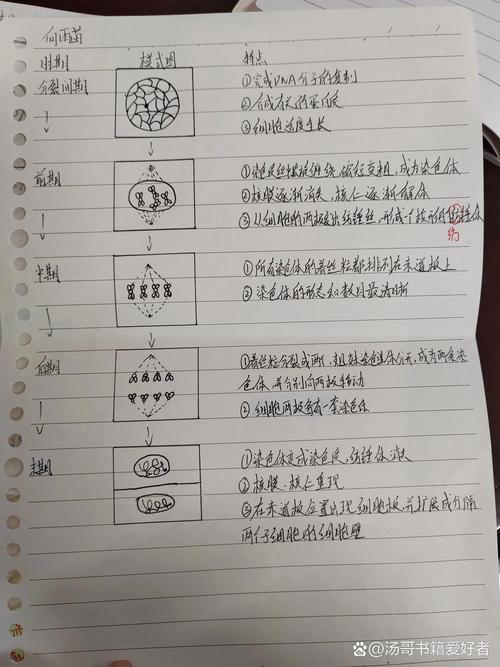 何雨苗
时期 模式图 特点
分裂间期 ①完成DNA分子的复制
②合成有关的蛋白质
③细胞适度生长
前期 ①染色质丝螺旋缠绕,缩短变粗,成为染色体
②核膜逐渐消失,核仁逐渐解体
③从细胞的两极发出纺锤丝,形成一个梭形的纺锤体
纺
中期 ①所有染色体的着丝粒都排列在赤道板上
②染色体的形态和数目最清晰
后期 ①着丝粒分裂成两个,姐妹染色单体分开,成为两条染
色体,并分别向两极移动
②细胞两极各有一套染色体
末期 ①染色体变成染色质,纺锤体消失
②核膜、核仁重现
③在赤道板位置出现细胞板,并扩展成分隔
两个子细胞的细胞壁
汤哥书籍爱好者